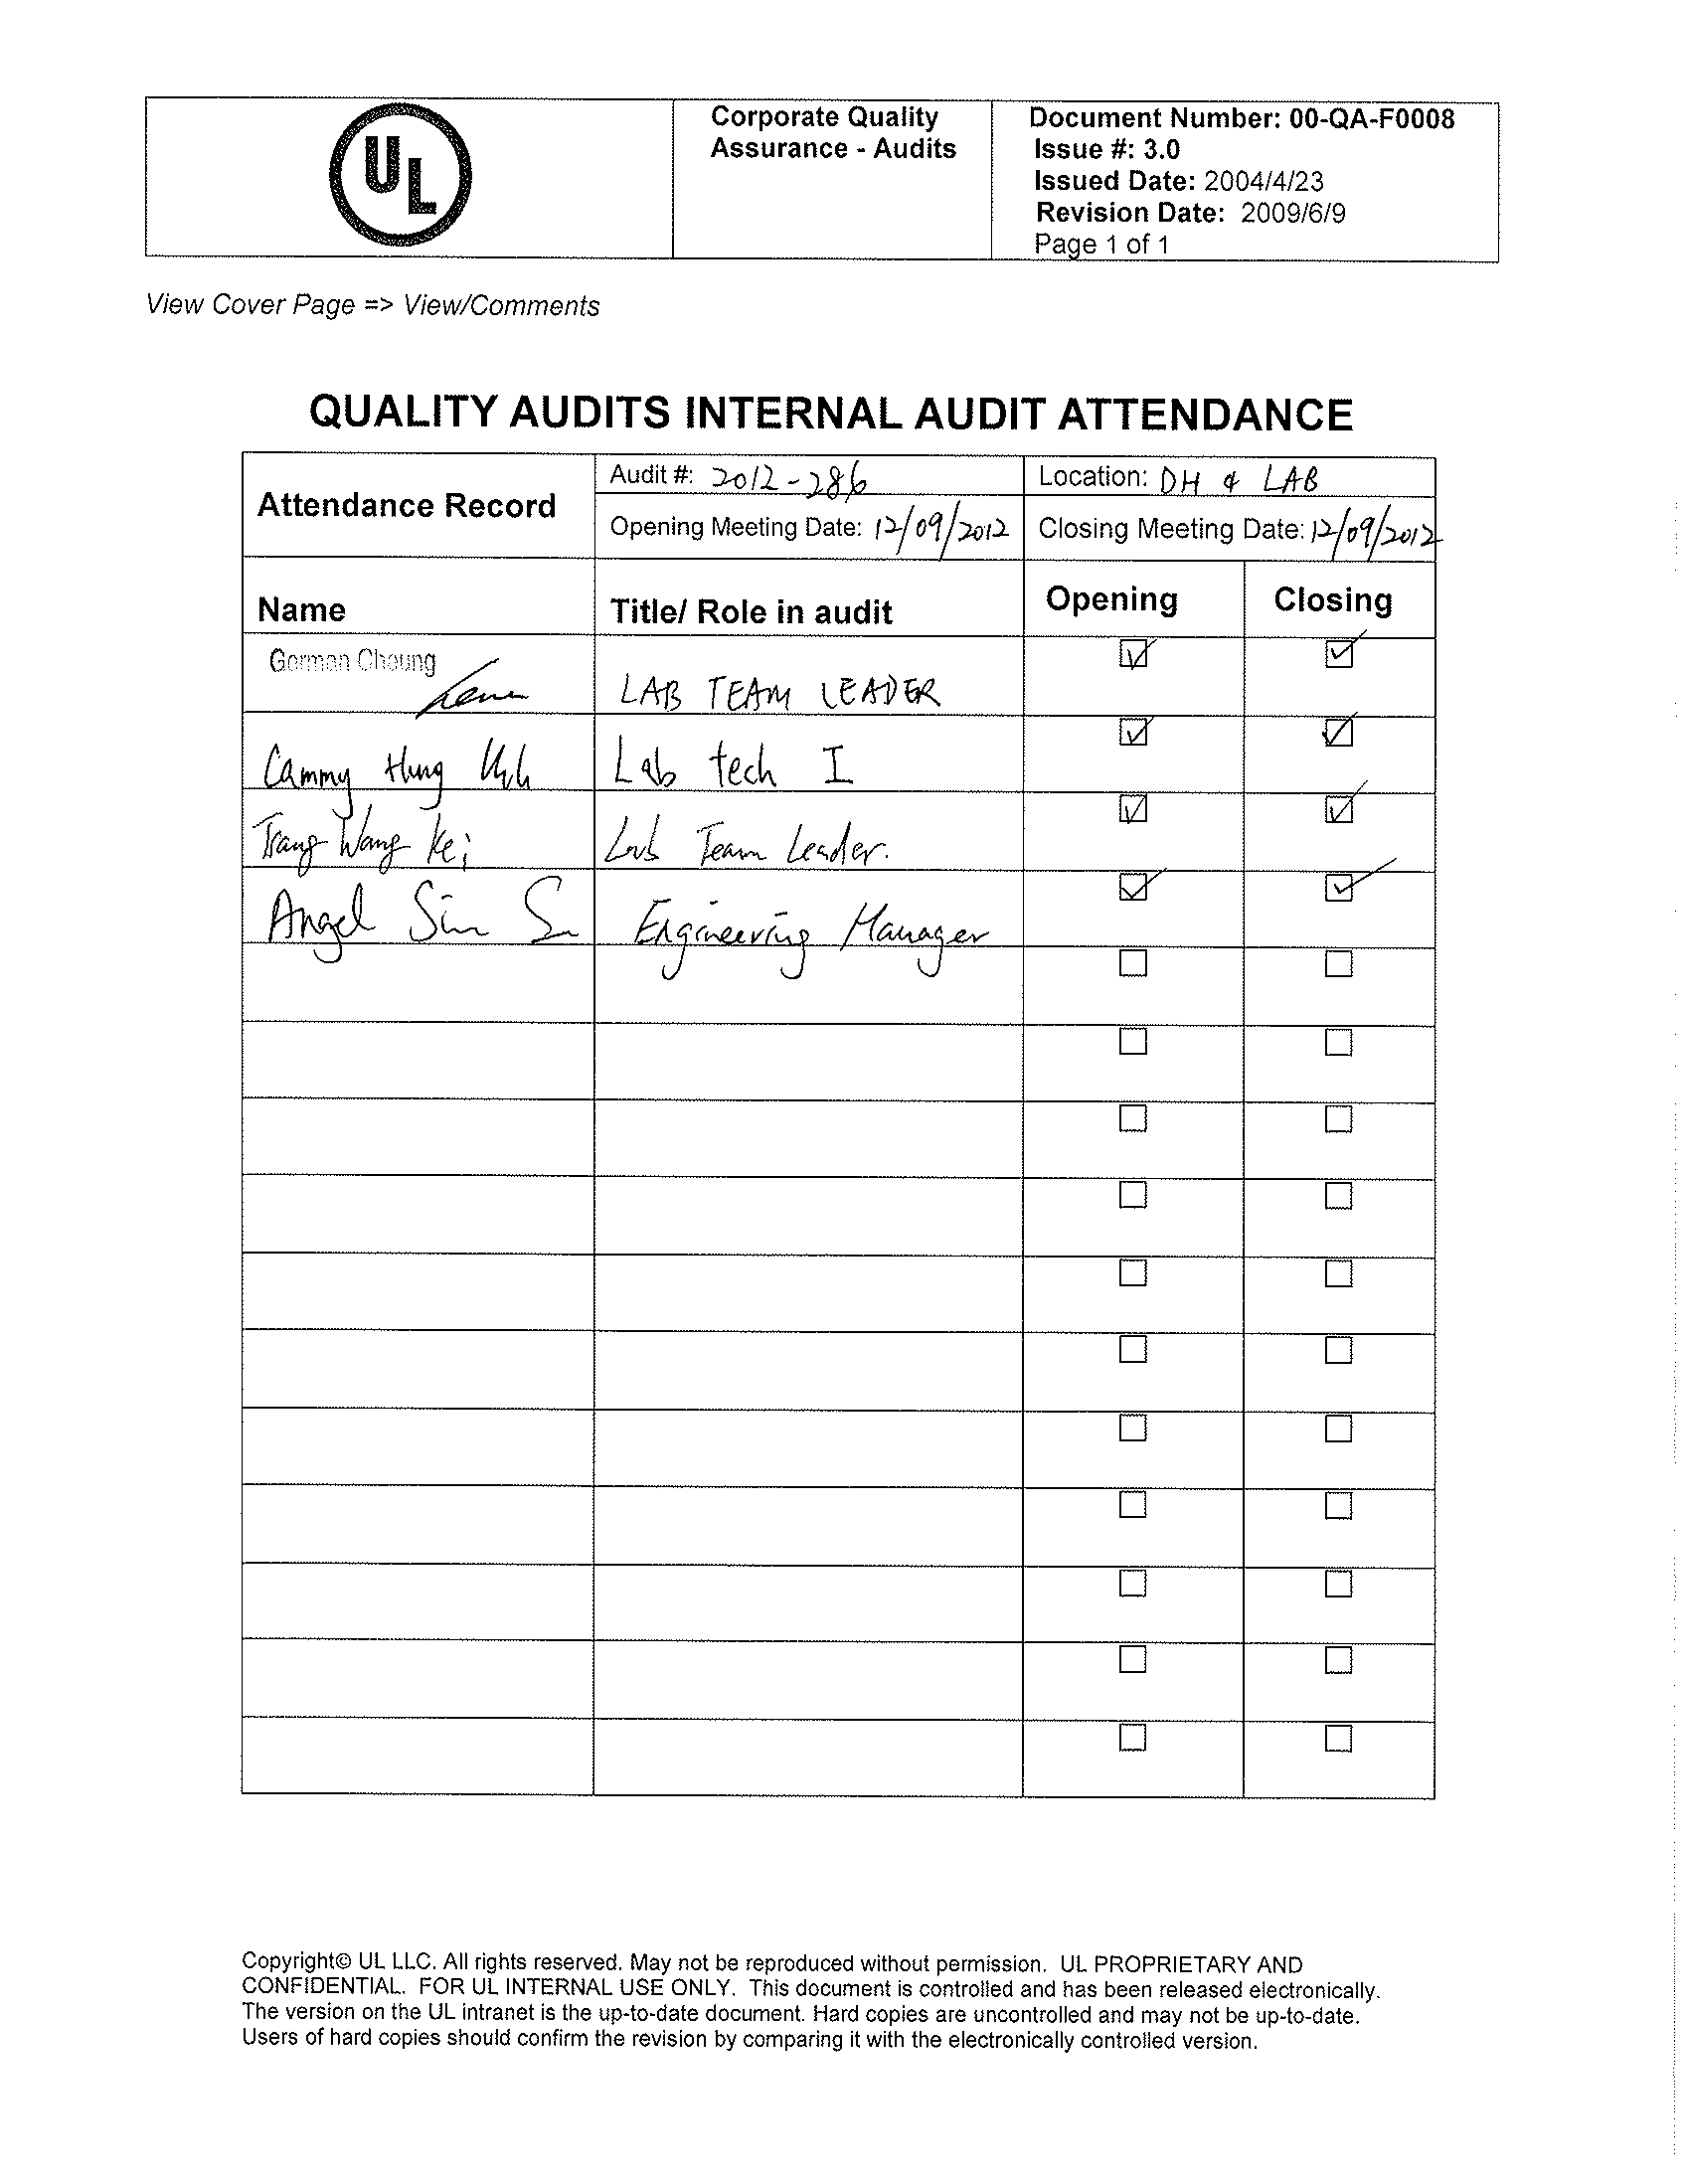 UL
Corporate Quality
Assurance - Audits
Document Number: 00-QA-F0008
Issue #: 3.0
Issued Date: 2004/4/23
Revision Date: 2009/6/9
Page 1 of 1
View Cover Page => View/Comments
QUALITY AUDITS INTERNAL AUDIT ATTENDANCE
Attendance Record
Audit #: 2012-286
Location: DH & LAB
Opening Meeting Date: 12/09/2012
Closing Meeting Date: 12/09/2012
Name
Title/ Role in audit
Opening
Closing
German Cheung
LAB TEAM LEADER
Cammy Hung
Lab tech I
Tsang Wang Kei
Lab Team Leader.
Angel Sin
Engineering Manager
Copyright© UL LLC. All rights reserved. May not be reproduced without permission. UL PROPRIETARY AND
CONFIDENTIAL. FOR UL INTERNAL USE ONLY. This document is controlled and has been released electronically.
The version on the UL intranet is the up-to-date document. Hard copies are uncontrolled and may not be up-to-date.
Users of hard copies should confirm the revision by comparing it with the electronically controlled version.